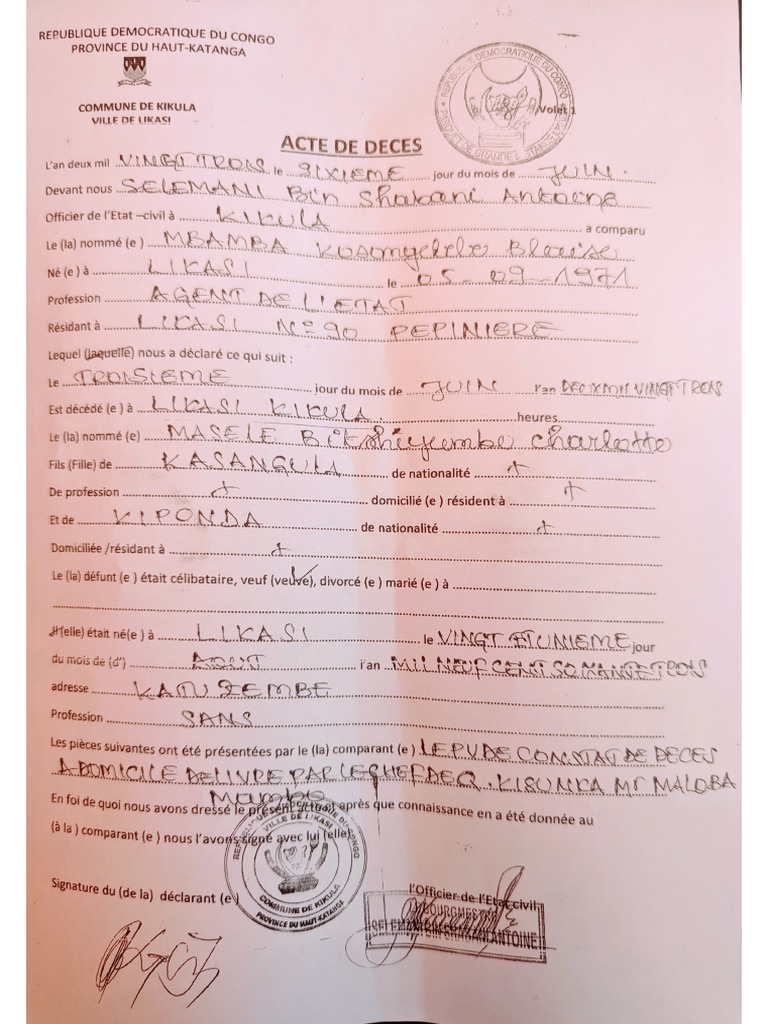 REPUBLIQUE DEMOCRATIQUE DU CONGO
PROVINCE DU HAUT-KATANGA
COMMUNE DE KIKULA
VILLE DE LIKASI
REPUBLIQUE DEMOCRATIQUE DU CONGO
PARQUET DE GRANDE I
Volet 1
ACTE DE DECES
L'an deux mil VINGT TROIS le SIXIEME jour du mois de JUIN.
Devant nous SELEMANI Bin Shabani Antoine
Officier de l'Etat –civil à KIKULA a comparu
Le (la) nommé (e ) MBAMBA Kosongelele Blaise
Né (e ) à LIKASI le 05-09-1971
Profession AGENT DE L'ETAT
Résidant à LIKASI N° 90 PEPINIERE
Lequel (laquelle) nous a déclaré ce qui suit :
Le TROISIEME jour du mois de JUIN l'an DEUX MIL VINGT TROIS
Est décédé (e ) à LIKASI KIKULA. heures
Le (la) nommé (e) MASELE charlotte
Fils (Fille) de KASANGULA de nationalité +
De profession + domicilié (e ) résident à +
Et de KIPONDA de nationalité +
Domiciliée /résidant à +
Le (la) défunt (e ) était célibataire, veuf (veuve), divorcé (e ) marié (e ) à
Il(elle) était né(e ) à LIKASI le VINGT ET UNIEME jour
du mois de (d') AOUT l'an MIL NEUF CENT SOIXANTE TROIS
adresse KATUZEMBE
Profession SANS
Les pièces suivantes ont été présentées par le (la) comparant (e ) LE PV DE CONSTAT DE DECES
A DOMICILE DELIVRE PAR LE CHEF DE Q. KISUNKA Mr MALOBA
Mambo
En foi de quoi nous avons dressé le présent acte et après que connaissance en a été donnée au
(à la ) comparant (e ) nous l'avons signé avec lui (elle)
REPUBLIQUE DEMOCRATIQUE DU CONGO
VILLE DE LIKASI
COMMUNE DE KIKULA
PROVINCE DU HAUT-KATANGA
Signature du (de la) déclarant (e )
l'Officier de l'Etat civil
BOURGMESTRE
SELEMANI BIN SHABANI ANTOINE